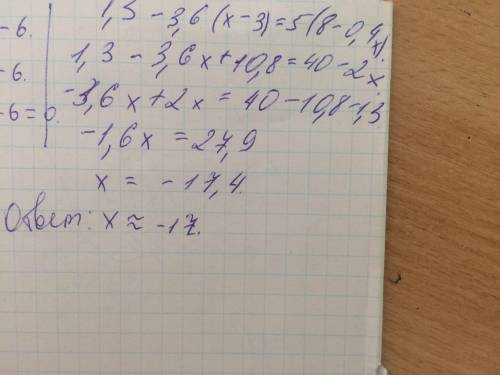 1,3 - 3,6(x-3)=5(8-0,4x)
1,3 - 3,6x+10,8=40-2x
-3,6x+2x = 40-10,8-1,3
-1,6x = 27,9
x = -17,4.
Ответ: x ≈ -17.
-6.
-6.
-6=0.